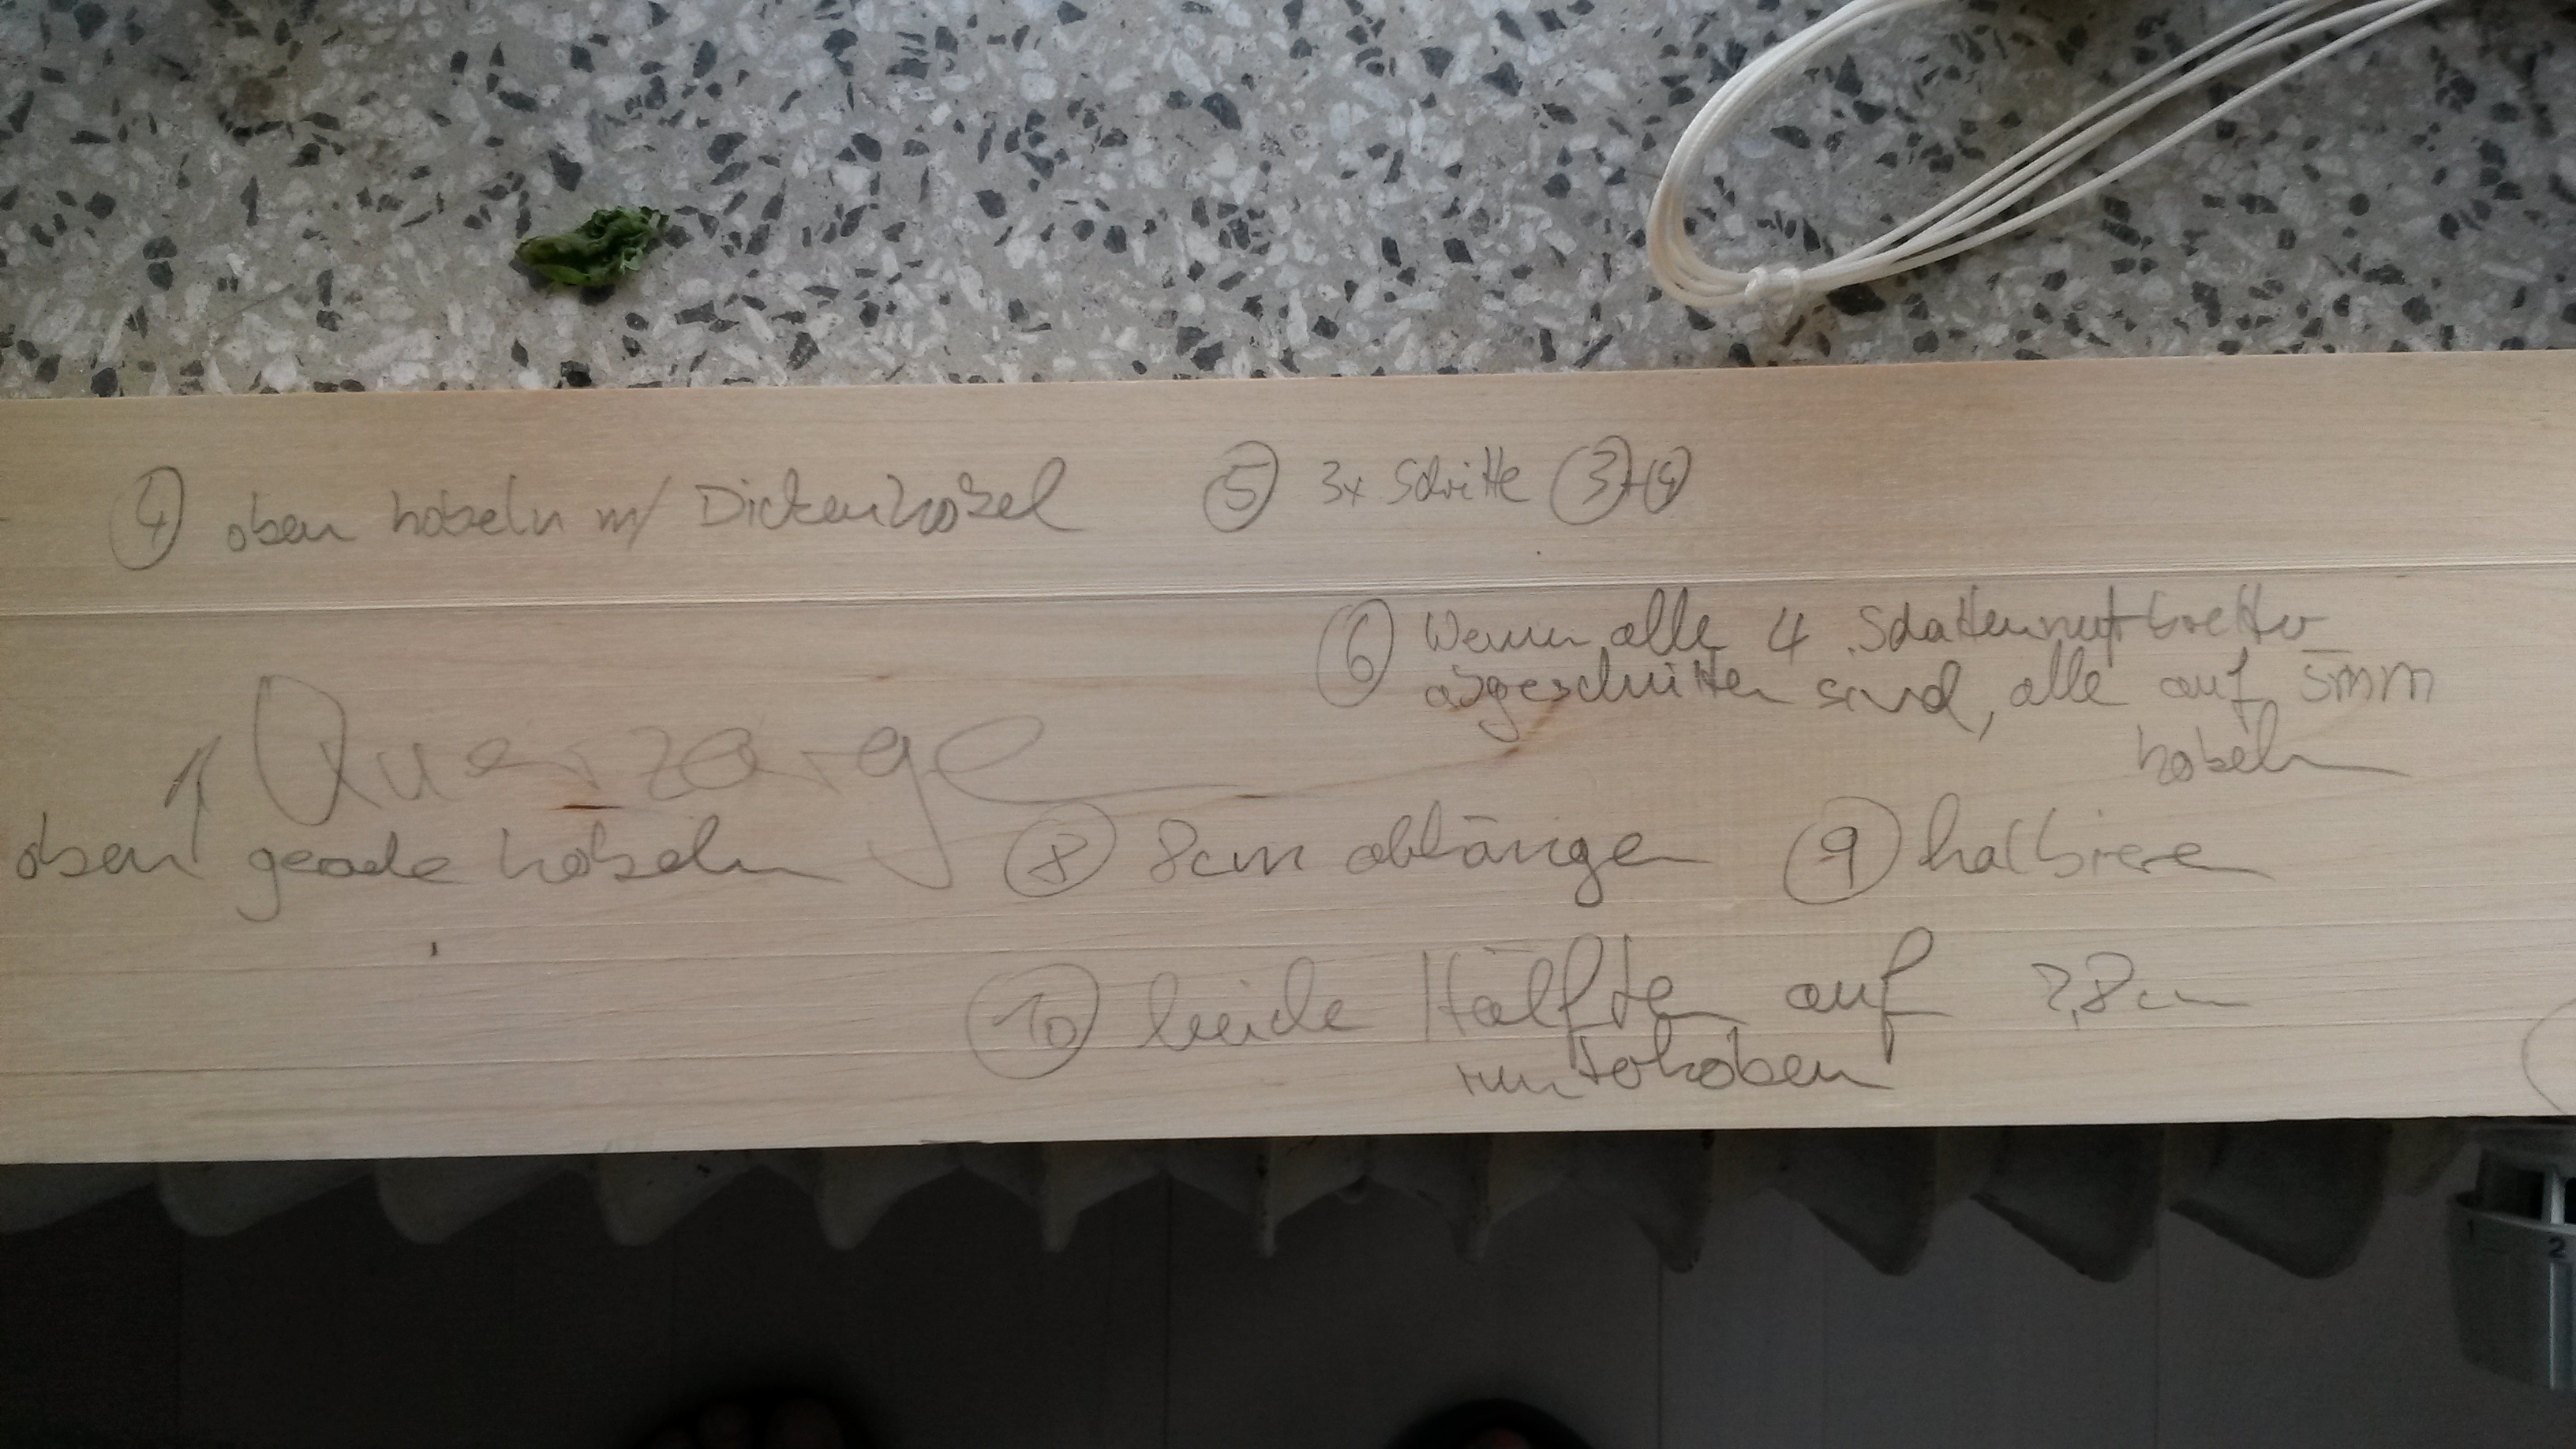 ④ oben hobeln m/ Dickenhobel ⑤ 3x Schritte ③+④
⑥ Wenn alle 4 Schattennutbretter
abgeschnitten sind, alle auf 5mm
hobeln
Querzarge
oben gerade hobeln ⑧ 8cm ablänge ⑨ halbiere
⑩ beide Hälften auf 7,8cm
runterhobeln
2
1